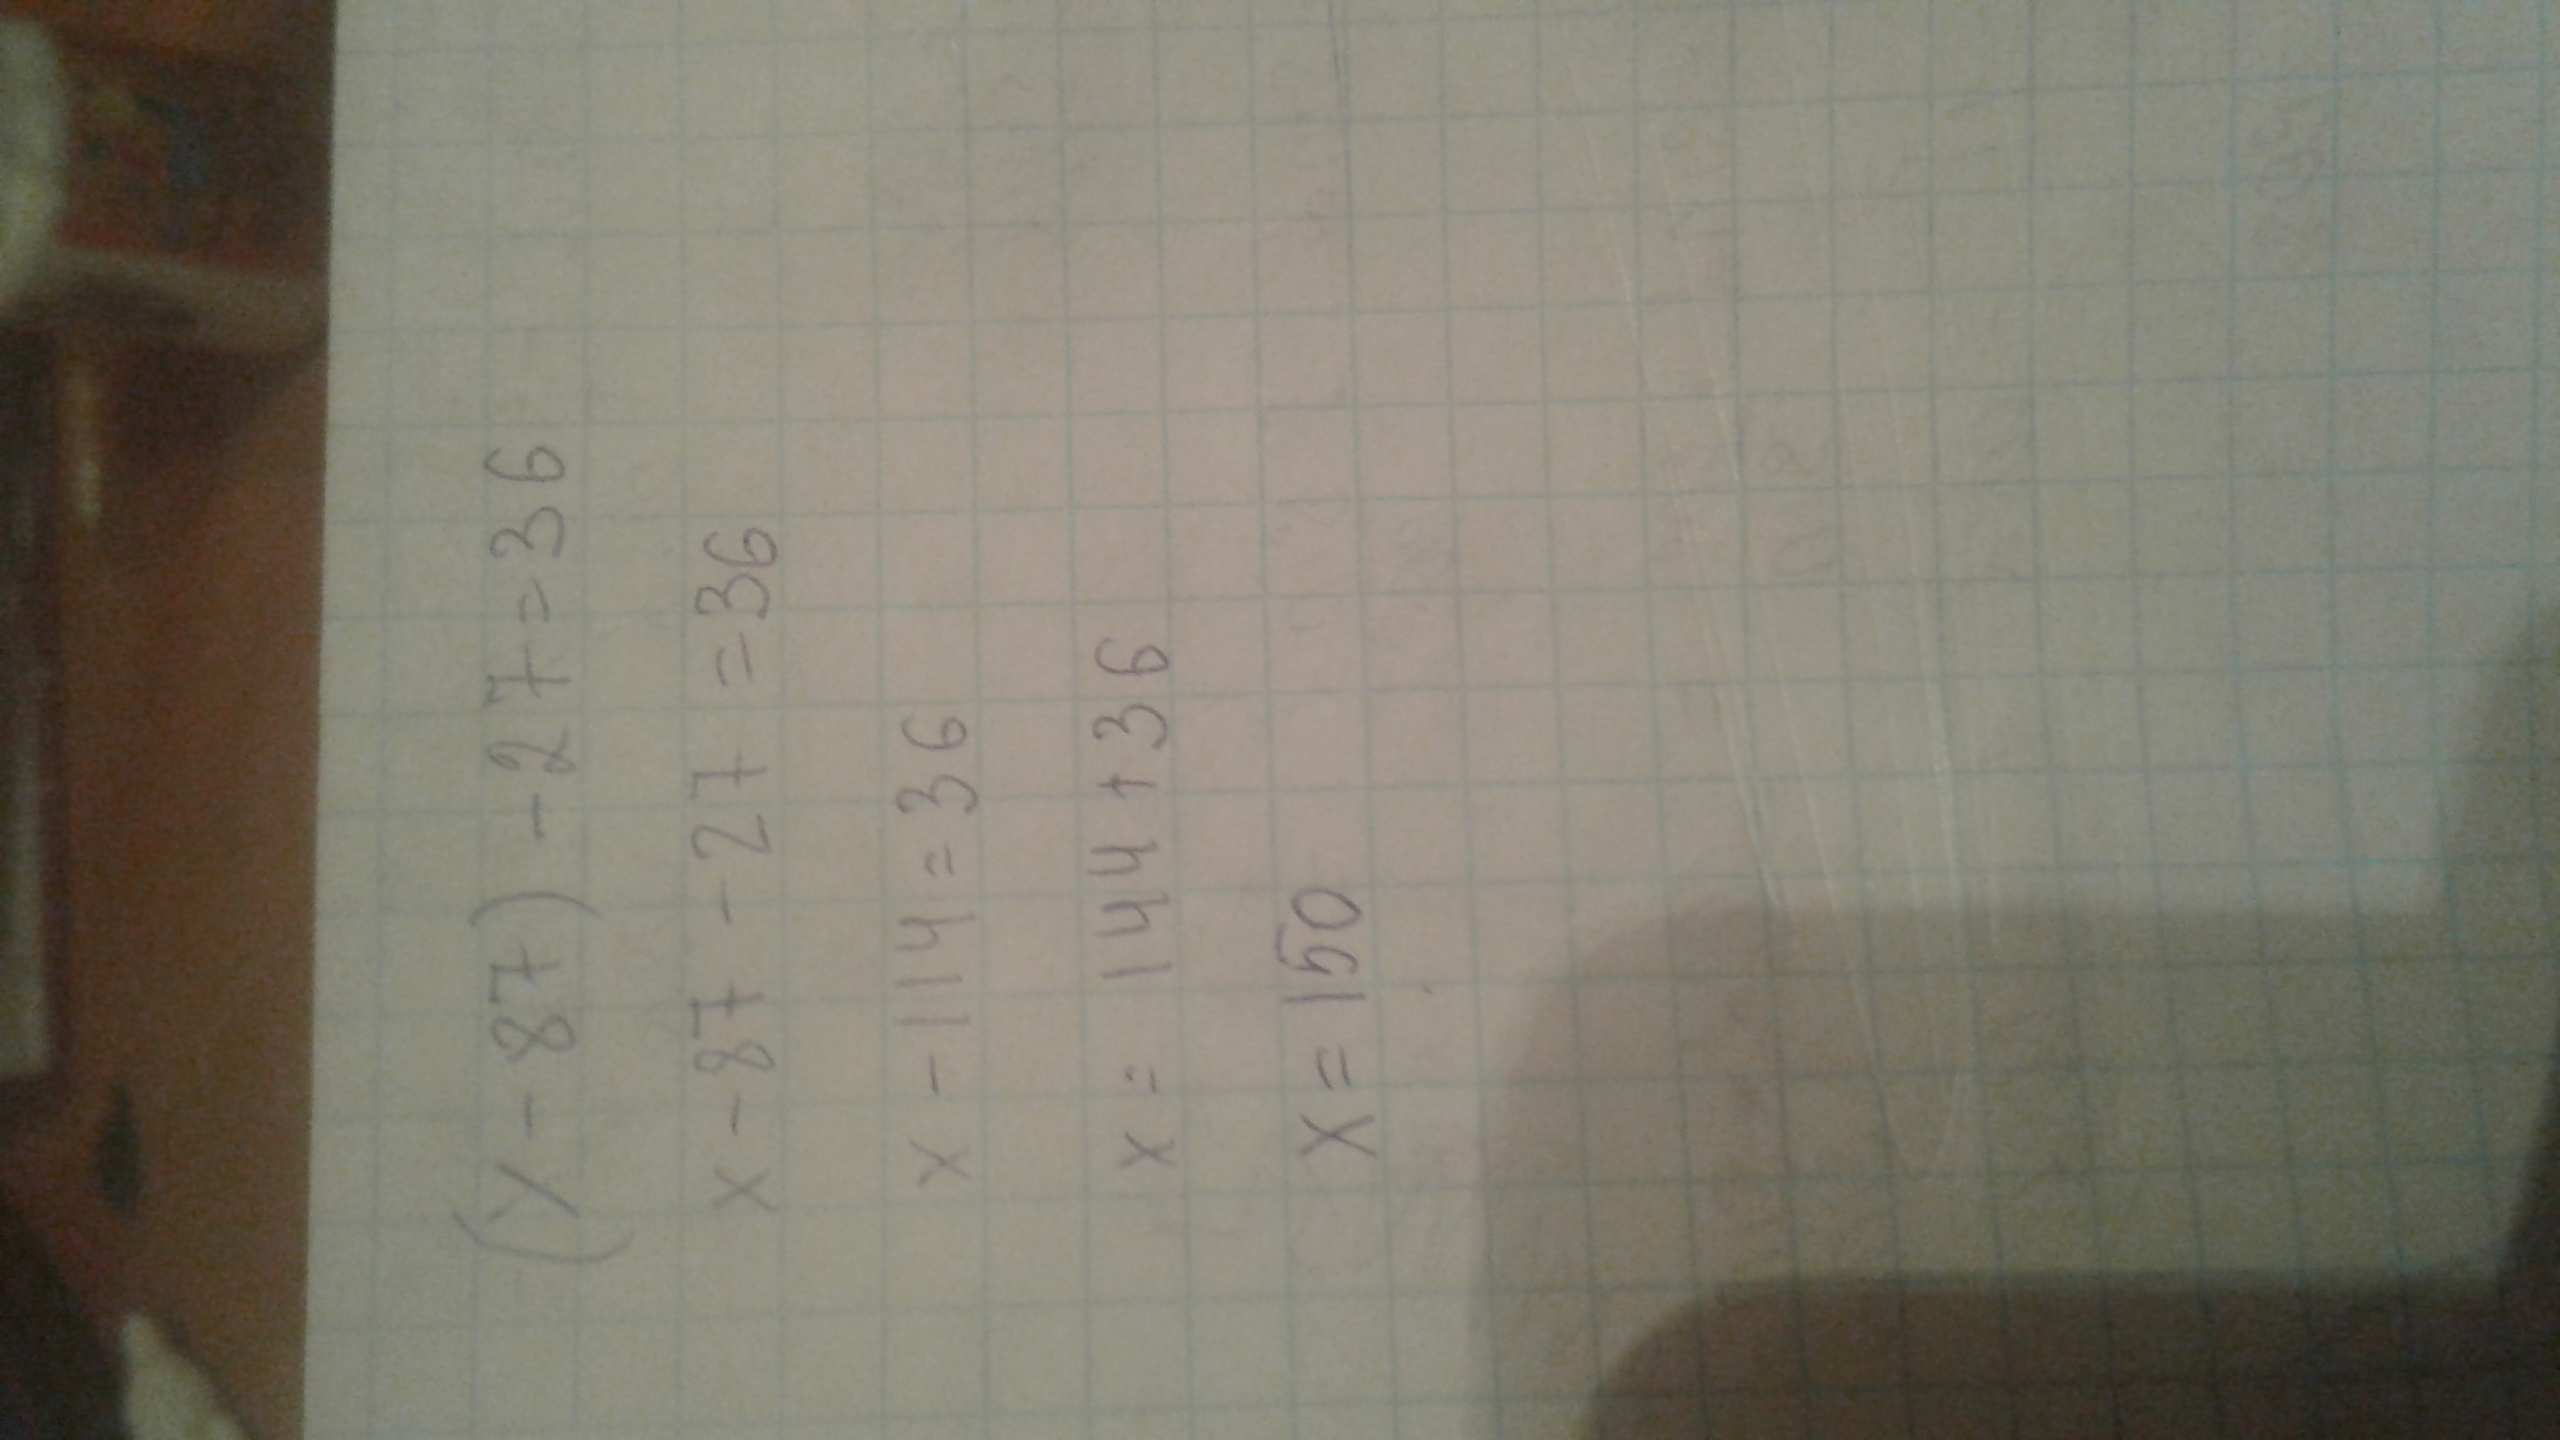 (x-87)-27=36
x-87-27=36
x-114=36
x= 144+36
x=150